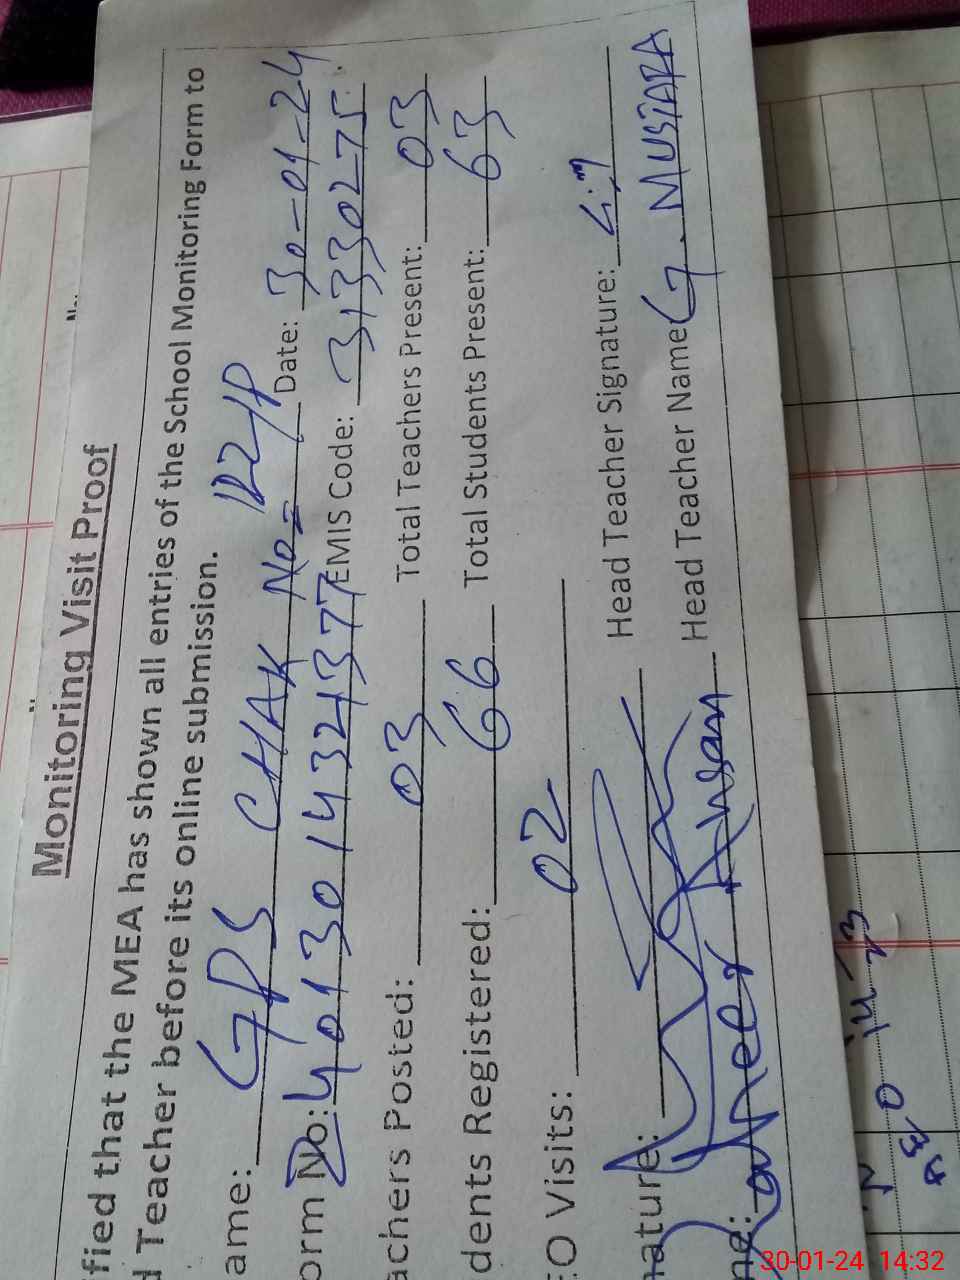 Monitoring Visit Proof
fied that the MEA has shown all entries of the School Monitoring Form to
d Teacher before its online submission.
ame: GPS CHAK No= 122/P Date: 30-01-24
orm No: EMIS Code: 31330275
achers Posted: 03 Total Teachers Present: 03
dents Registered: 66 Total Students Present: 63
EO Visits: 02
nature: Head Teacher Signature:
me: Ansari Head Teacher Name G. MUSTAFA
30-01-24 14:32